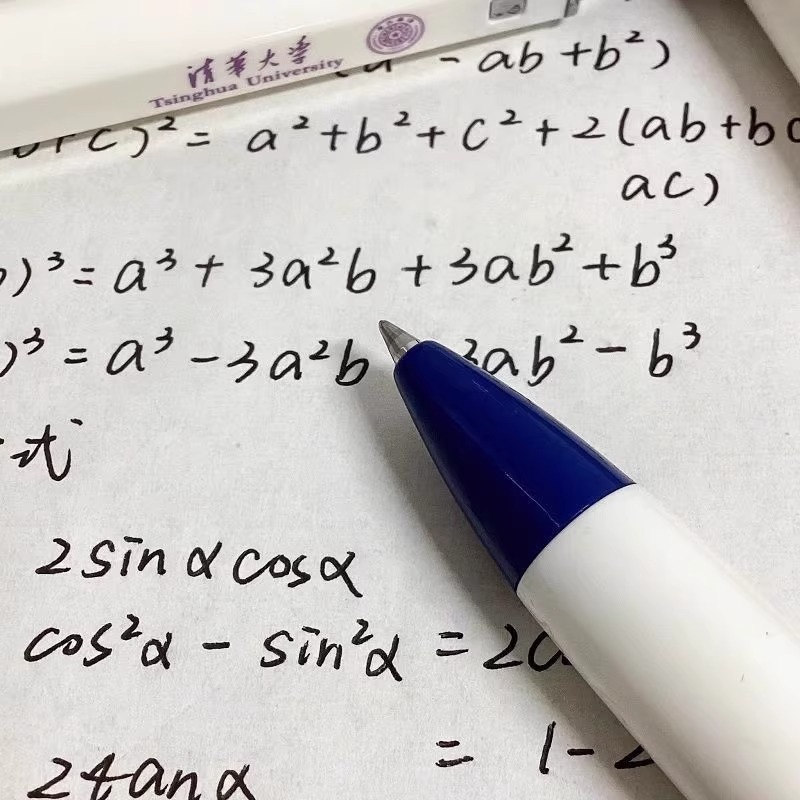 清华大学
Tsinghua University
- ab + b²)
c)² = a² + b² + c² + 2(ab + b
ac)
)³ = a³ + 3a²b + 3ab² + b³
)³ = a³ - 3a²b 3ab² - b³
式
2 sin α cos α
cos²α - sin²α = 2
= 1 -
2 tan α